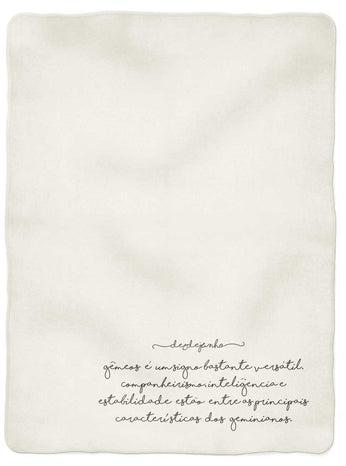 desdejanho
gêmeos é um signo bastante versátil.
companheirismo, inteligência e
estabilidade estão entre as principais
características dos geminianos.